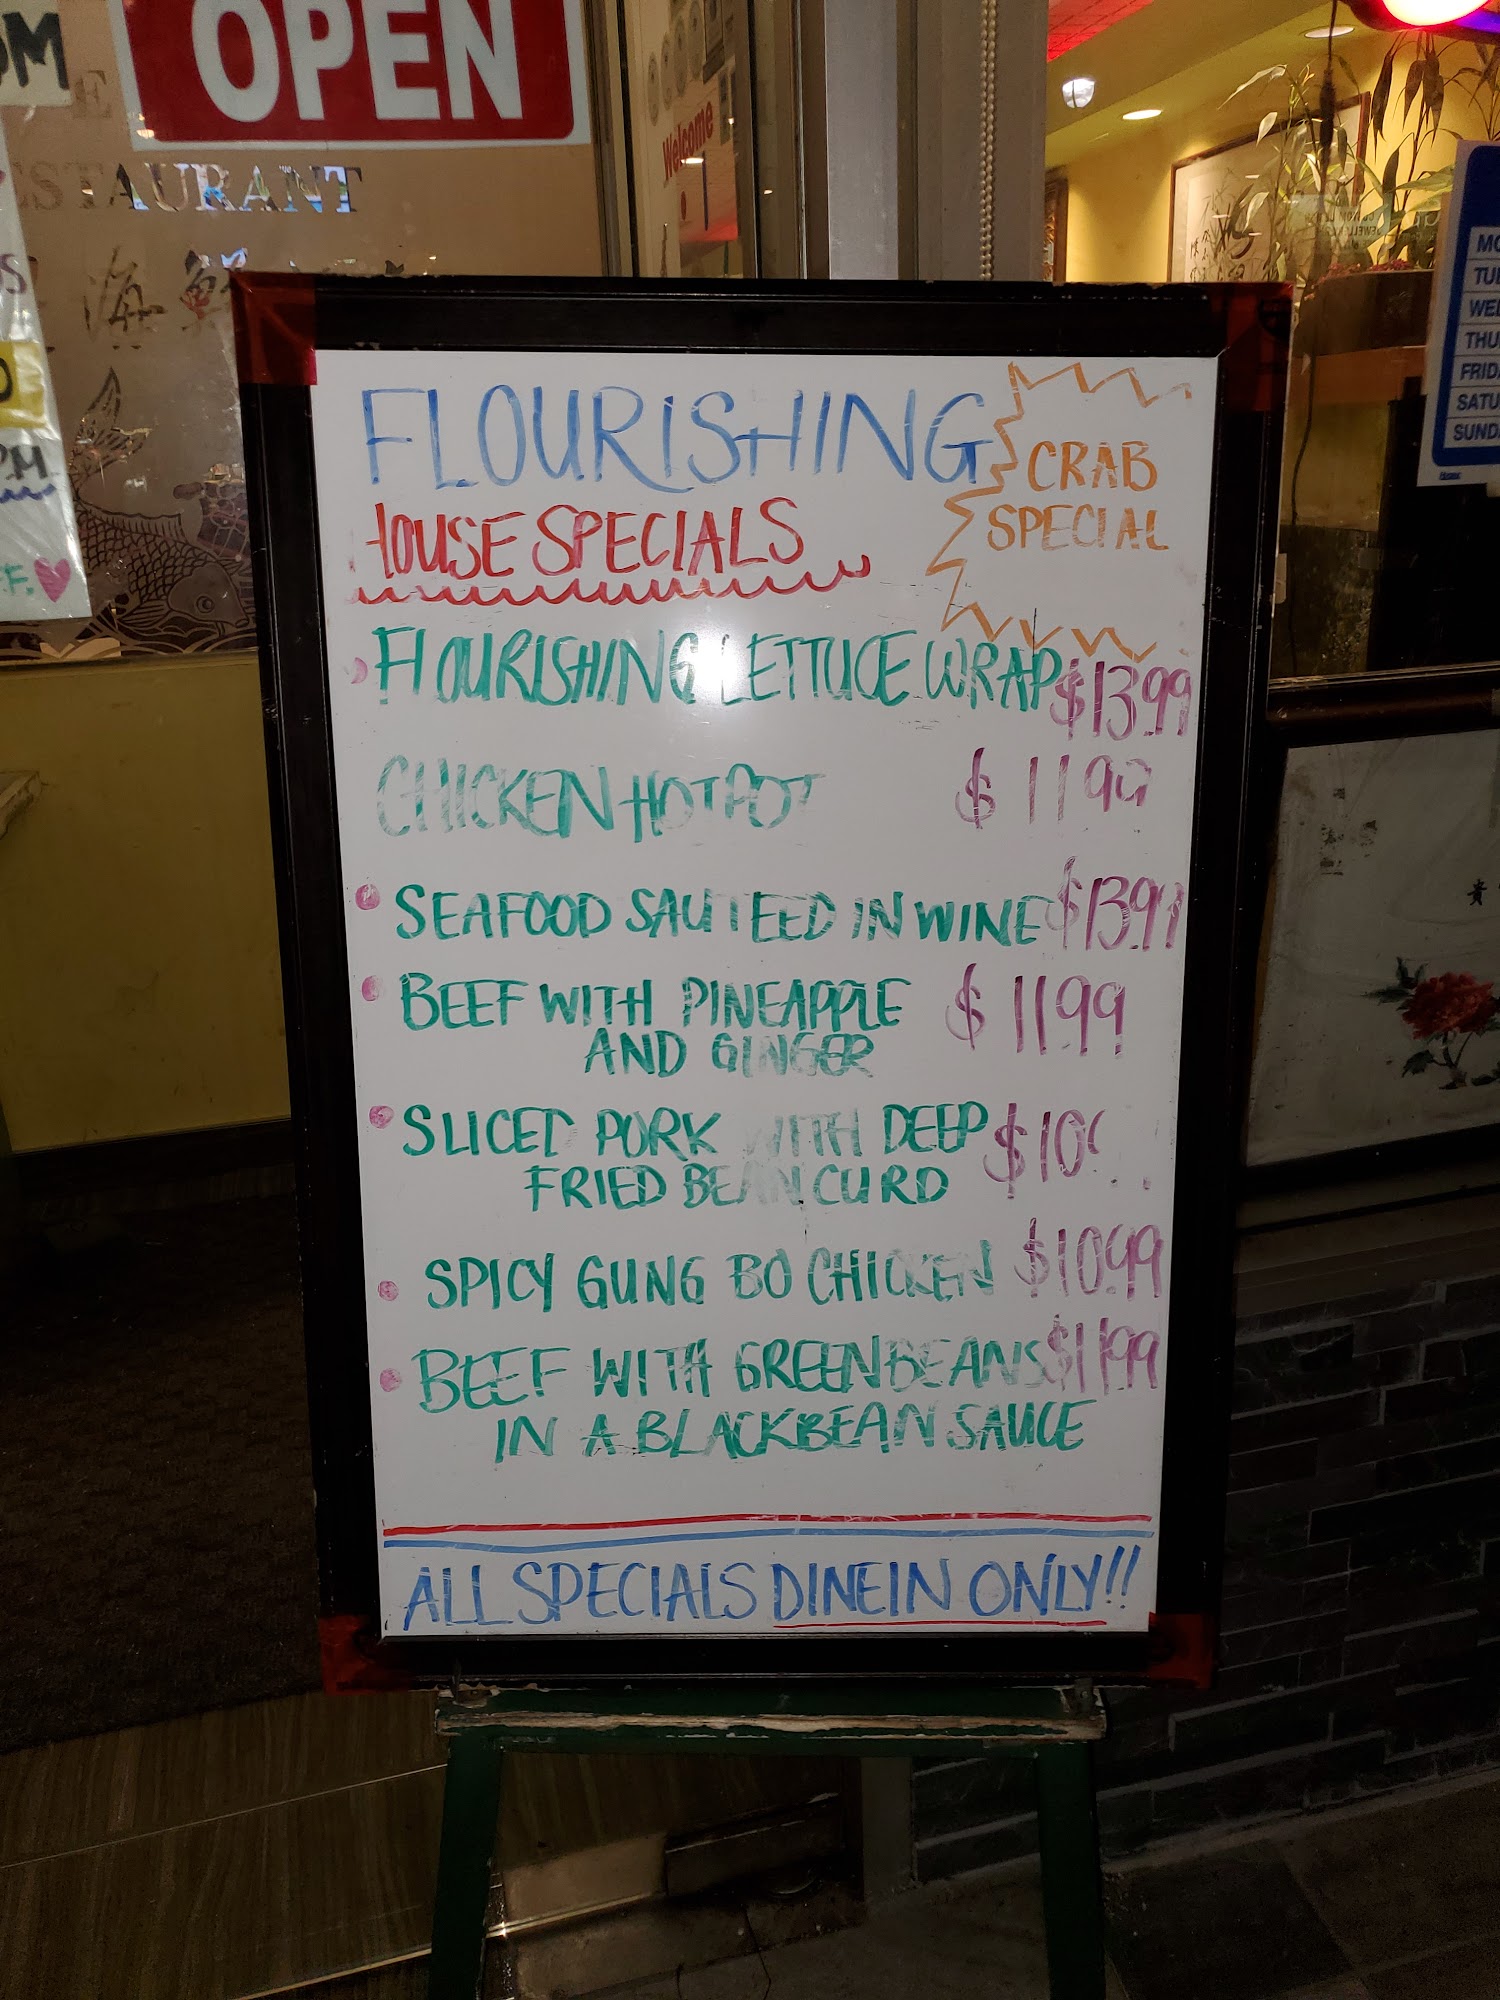 OPEN
Welcome
FLOURISHING
CRAB
SPECIAL
HOUSE SPECIALS
FLOURISHING LETTUCE WRAP $13.99
CHICKEN HOT POT $11.99
SEAFOOD SAUTEED IN WINE $13.99
BEEF WITH PINEAPPLE $11.99
AND GINGER
SLICED PORK WITH DEEP $10
FRIED BEAN CURD
SPICY GUNG BO CHICKEN $10.99
BEEF WITH GREEN BEANS $11.99
IN A BLACKBEAN SAUCE
ALL SPECIALS DINE IN ONLY!!
PM
ESTAURANT
海
PM
F.F.
MO
TUE
WED
THU
FRIDA
SATU
SUND
貴